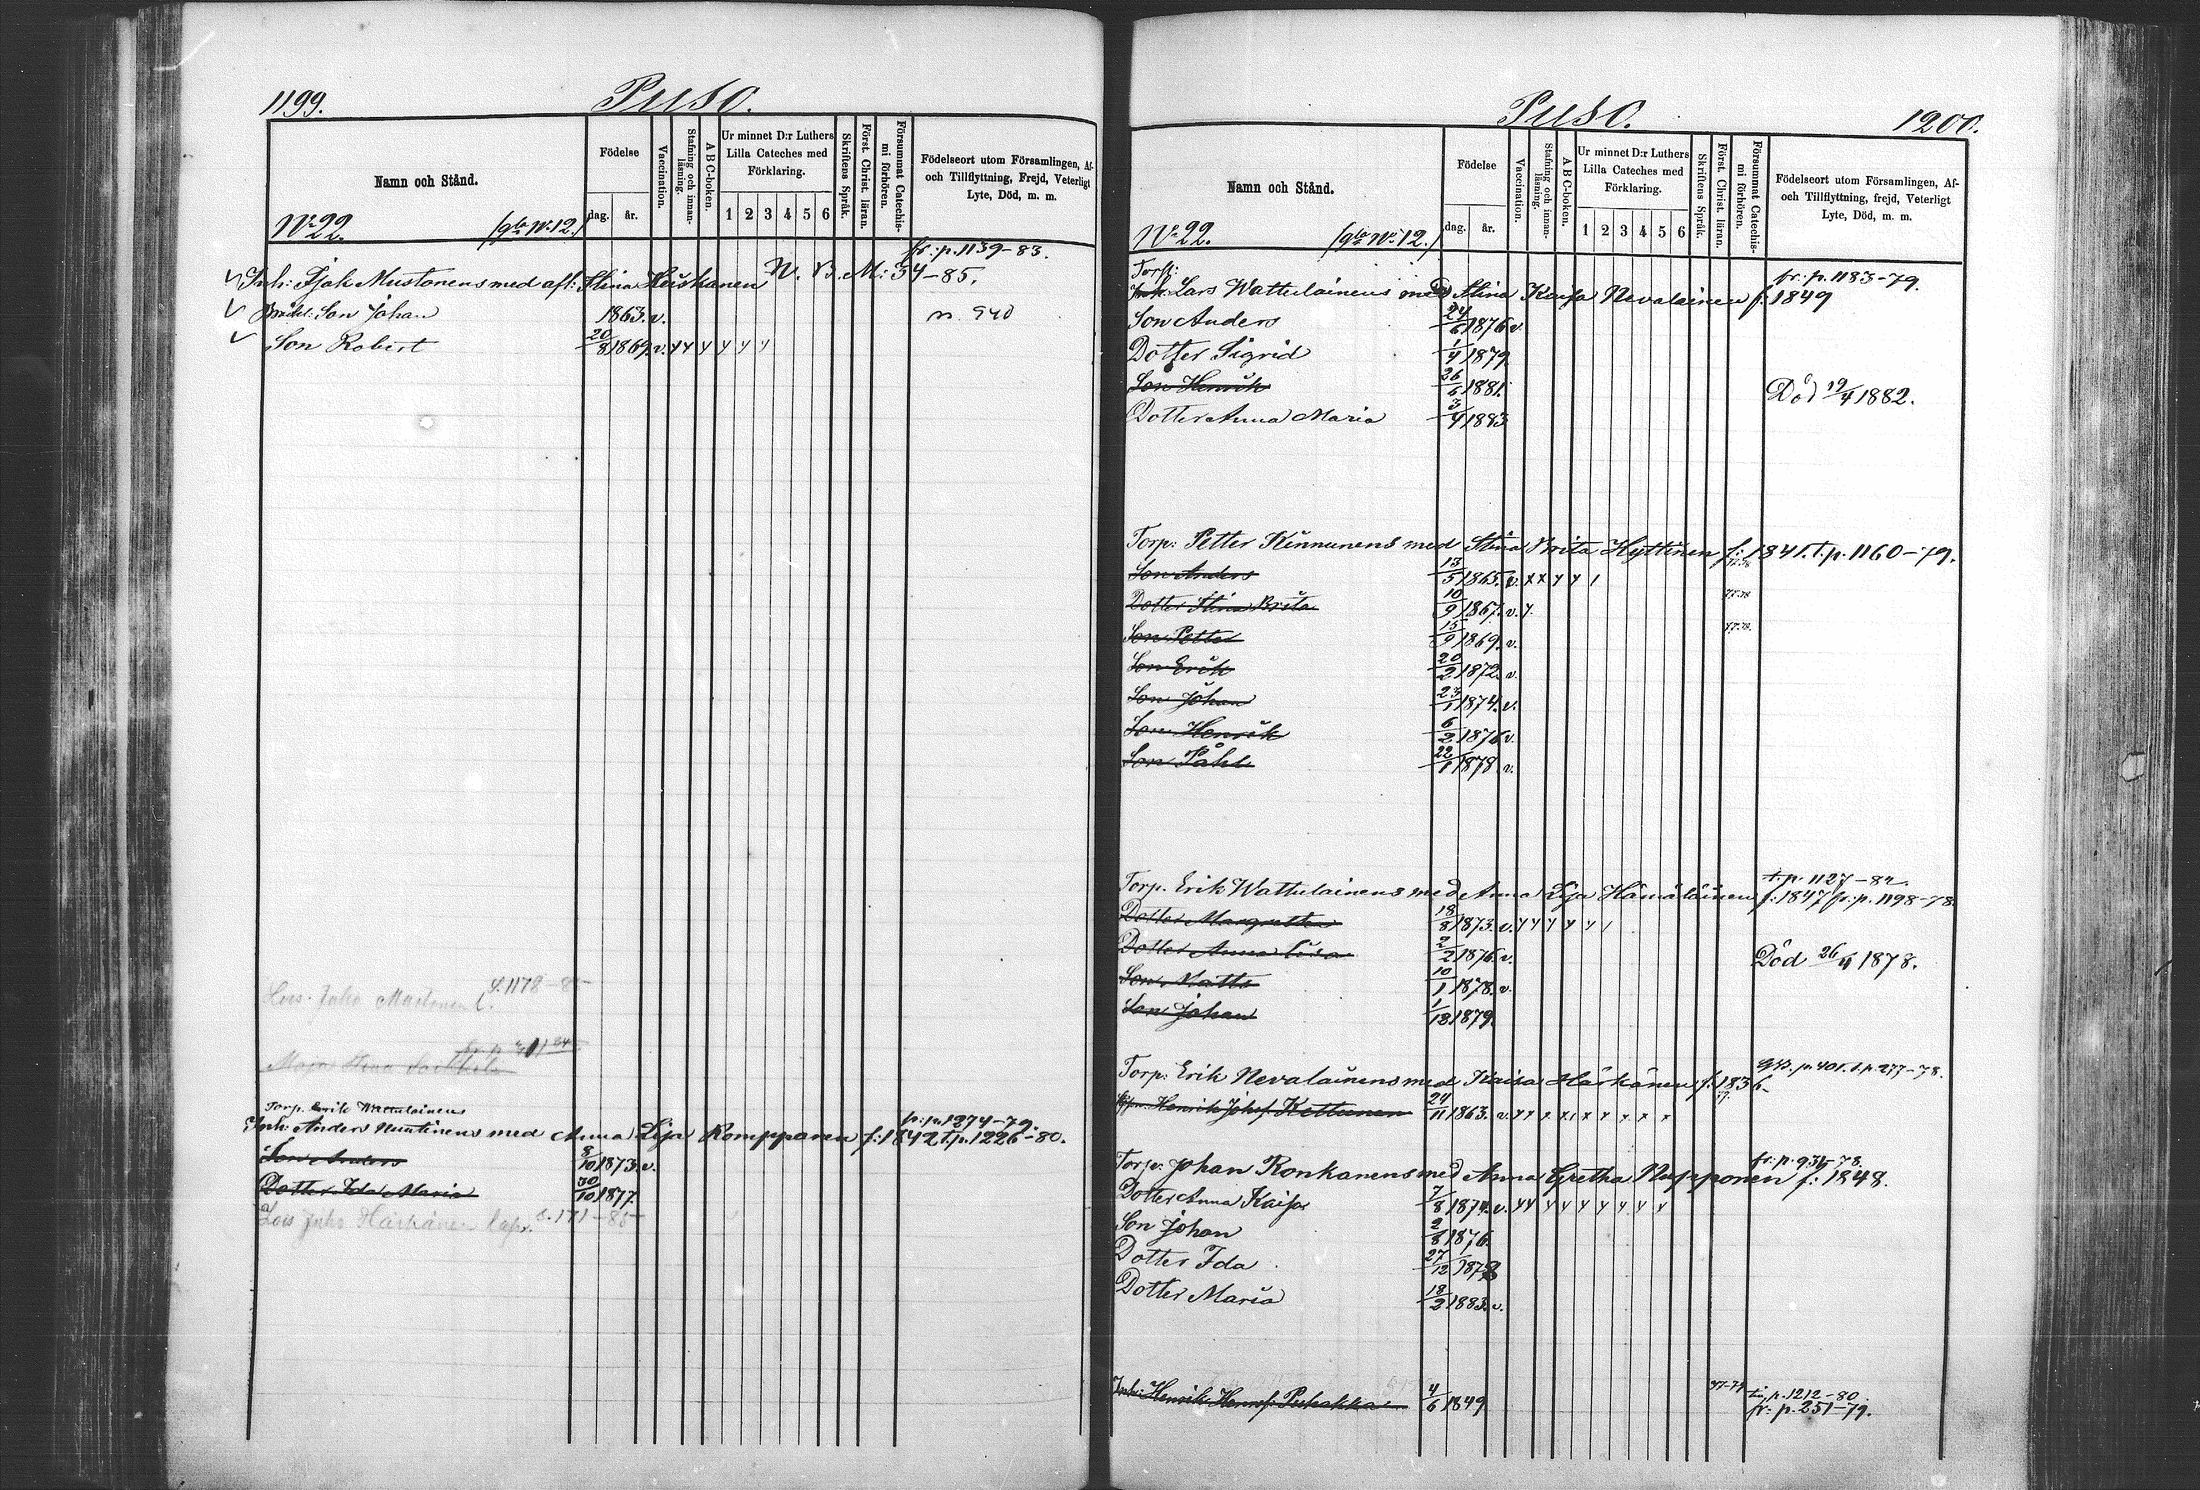 1199.
Puso.
Namn och Stånd.
Födelse
dag. år.
Vaccination.
Stafning och innanläsning.
ABC-boken.
Ur minnet D:r Luthers Lilla Cateches med Förklaring.
1 2 3 4 5 6
Skriftens Språk.
Först. Christ. läran.
Försummat Catechismi förhören.
Födelseort utom Församlingen, Af- och Tillflyttning, Frejd, Veterligt Lyte, Död, m. m.
No 22. No 12.
fr: p. 1139-83.
Inh: Mustonens med afl: Stina N. B. M: 34-85.
Son Johan 1863. v. 940
Son Robert 20/8 1869. v. y y y y y y
Juho
Maja Stina
Torp. Erik Wattulainens
fr: p. 1274-79.
Inh: Anders med Anna Lisa Romppanen f: 1842 t. p. 1226-80.
Son Anders 8/10 1873. v.
Dotter Ida Maria 30/10 1877.
Juho Härkänen
Puso.
1200.
Namn och Stånd.
Födelse
dag. år.
Vaccination.
Stafning och innanläsning.
ABC-boken.
Ur minnet D:r Luthers Lilla Cateches med Förklaring.
1 2 3 4 5 6
Skriftens Språk.
Först. Christ. läran.
Försummat Catechismi förhören.
Födelseort utom Församlingen, Af- och Tillflyttning, frejd, Veterligt Lyte, Död, m. m.
No 22. No 12.
Torp:
fr: p. 1183-79.
Lars Wattulainens med Stina Kaisa Nevalainen f: 1849
Son Anders 24/6 1876 v.
Dotter Sigrid 1/4 1879.
Son Henrik 26/6 1881. Död 19/4 1882.
Dotter Anna Maria 3/4 1883
Torp: Petter Kinnunens med Stina Brita Hyttinen f: 1841. t. p. 1160-79.
Son Anders 13/5 1865. v. x x y y 1
Dotter Stina Brita 10/9 1867. v. y.
Son Petter 15/9 1869. v.
Son Erik 20/2 1872. v.
Son Johan 23/1 1874. v.
Son Henrik 6/2 1876 v.
Son Påhl 22/1 1878 v.
t. p. 1127-82.
Torp. Erik Wattulainens med Anna Lisa Hämäläinen f: 1847 fr: p. 1198-78.
Dotter Margretha 18/8 1873. v. y y y y y 1
Dotter Anna Lisa 2/2 1876. v. Död 26/4 1878.
Son Matts 10/1 1878. v.
Son Johan 1/12 1879.
p. 401. t. p. 277-78.
Torp: Erik Nevalainens med Kaisa Härkönen f: 1836
Henrik Johsf. Kettunen 24/11 1863. v.
fr: p. 934-78.
Torp: Johan Ronkanens med Anna Gretha Nupponen f: 1848.
Dotter Anna Kaisa 7/8 1874. v. y y y y y y y y
Son Johan 2/8 1876.
Dotter Ida 27/12 1878
Dotter Maria 18/2 1883. v.
Inh: Henrik Henrsf. Puhakka 4/6 1849 77-79
p. 1212-80.
fr: p. 251-79.